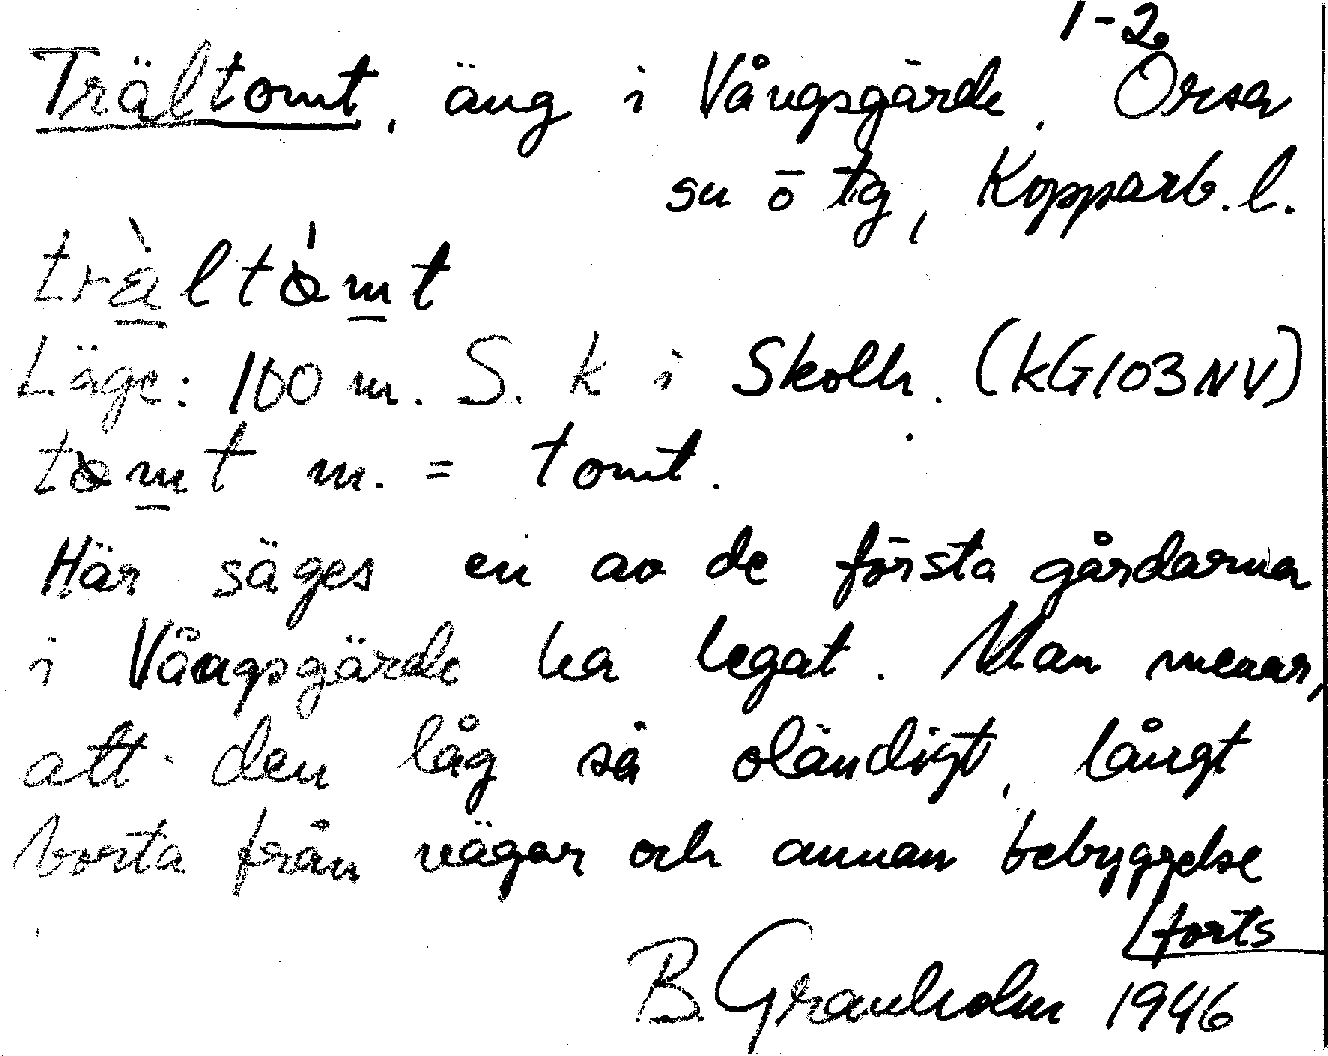 1-2
Trältomt, äng i Vångsgärde, Orsa
sn ö tg, Kopparb. l.
trä̀ltòmt
Läge: 100 m. S. k i Skolh. (kG103NV)
tòmt m. = tomt.
Här säges en av de första gårdarna
i Vångsgärde ha legat. Man menar,
att den låg så oländigt, långt
borta från vägar och annan bebyggelse
forts
B. Granholm 1946